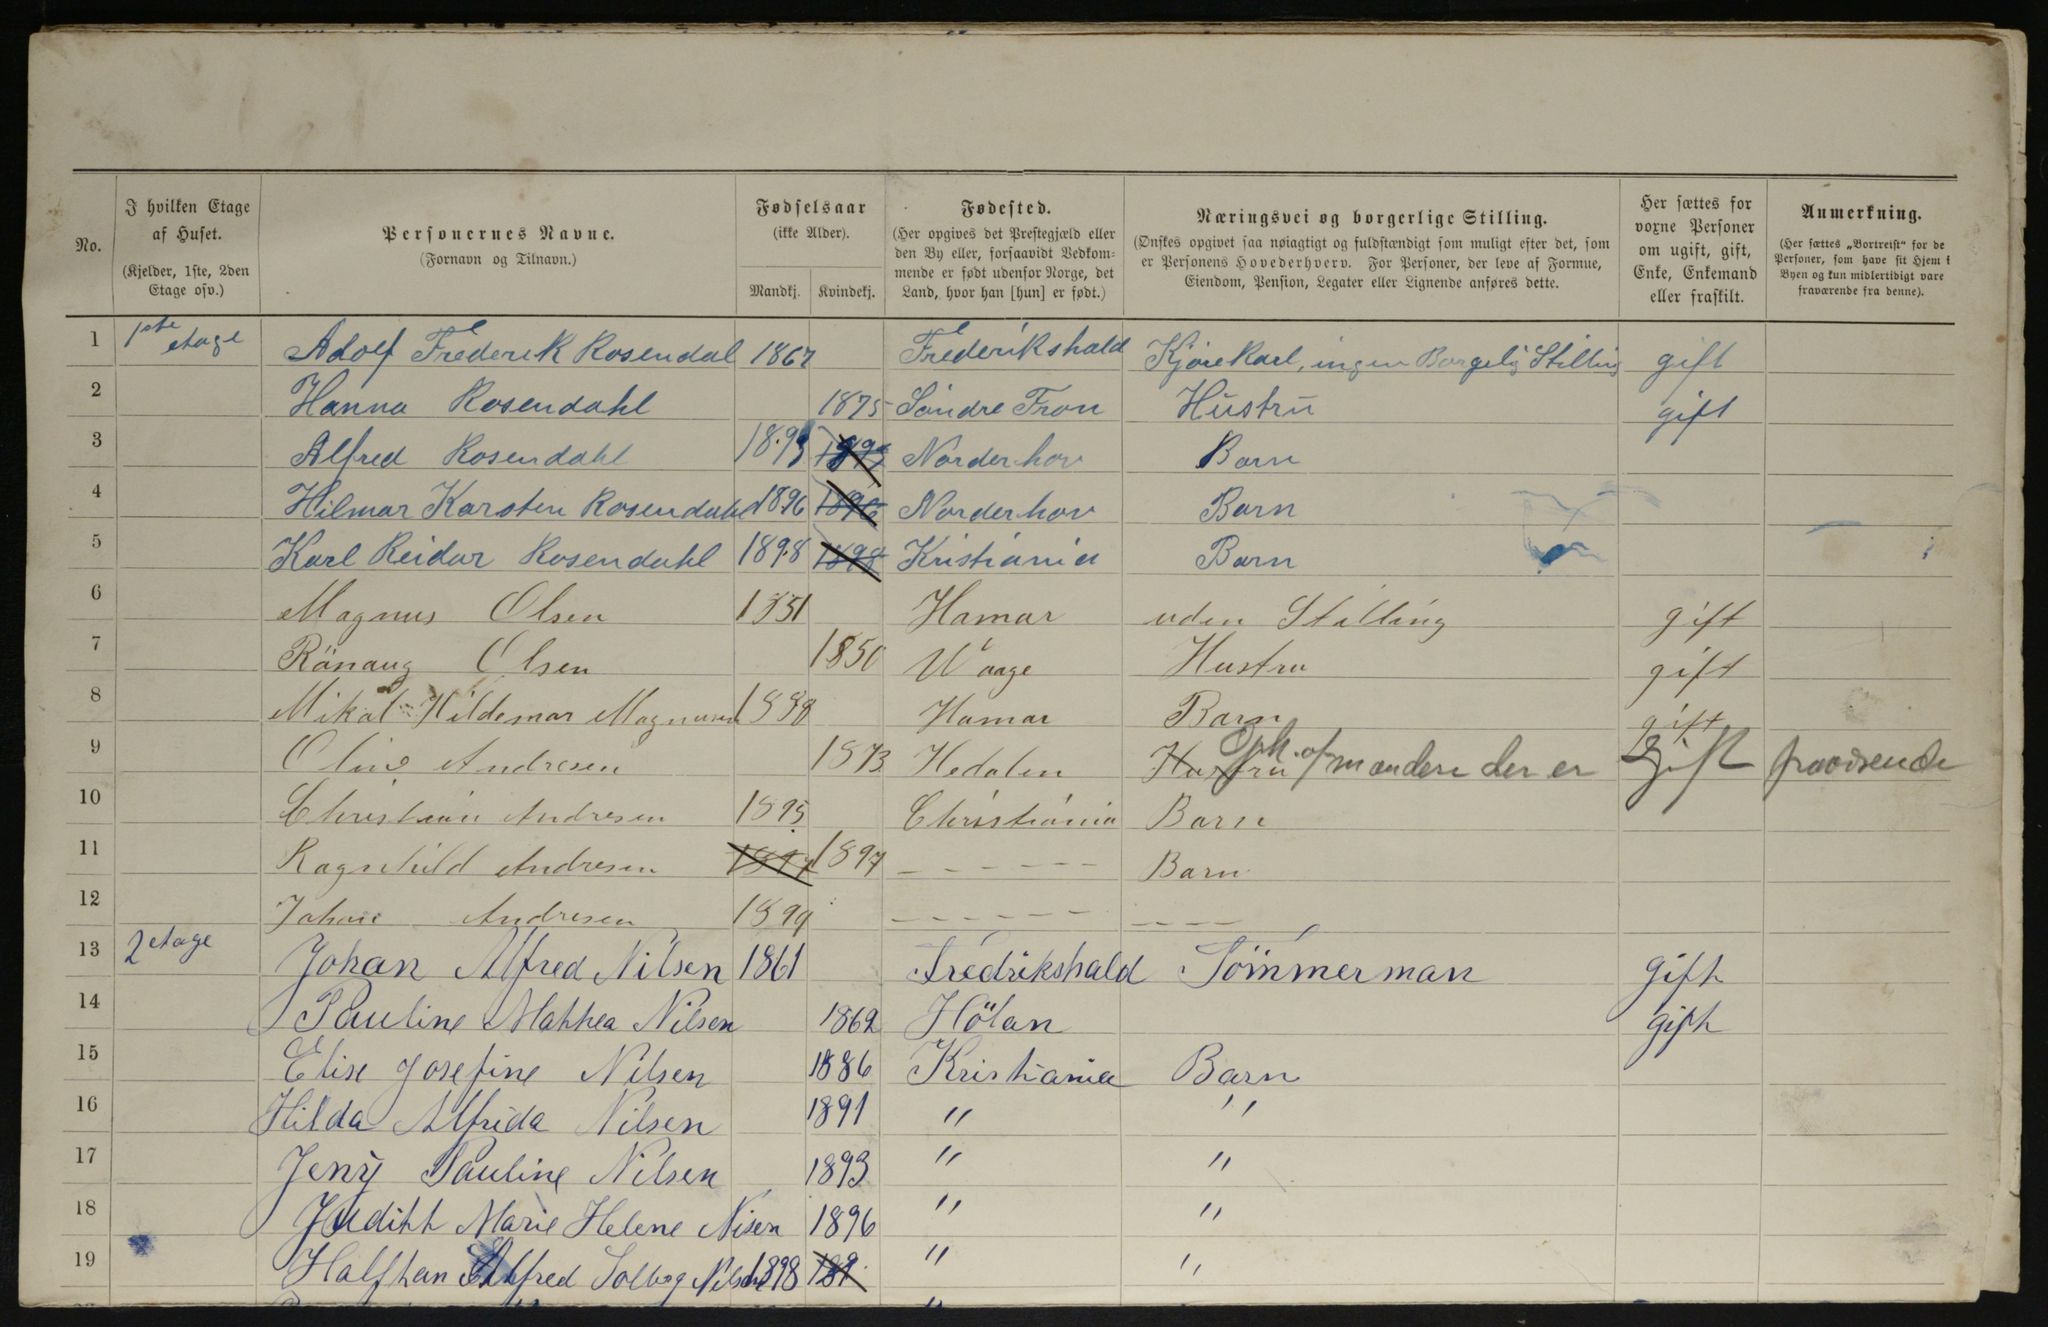 No.
I hvilken Etage af Huset. (Kjelder, 1ste, 2den Etage osv.)
Personernes Navne. (Fornavn og Tilnavn.)
Fødselsaar (ikke Alder). Mandkj. Kvindekj.
Fødested. (Her opgives det Prestegjæld eller den By eller, forsaavidt Vedkommende er født udenfor Norge, det Land, hvor han [hun] er født.)
Næringsvei og borgerlige Stilling. (Ønskes opgivet saa nøiagtigt og fuldstændigt som muligt efter det, som er Personens Hovederhverv. For Personer, der leve af Formue, Eiendom, Pension, Legater eller Lignende anføres dette.)
Her sættes for voxne Personer om ugift, gift, Enke, Enkemand eller fraskilt.
Anmerkning. (Her sættes „Bortreist“ for de Personer, som have sit Hjem i Byen og kun midlertidigt vare fraværende fra denne).
1 1ste etage Adolf Frederik Rosendal 1867 Frederikshald Kjørekarl, ingen Borgelig Stilling gift
2 Hanna Rosendahl 1875 Söndre Fron Hustru gift
3 Alfred Rosendahl 1893 Norderhov Barn
4 Hilmar Karsten Rosendahl 1896 1896 Norderhov Barn
5 Karl Reidar Rosendahl 1898 1898 Kristiania Barn
6 Magnus Olsen 1851 Hamar uden Stilling gift
7 Rönaug Olsen 1850 Waage Hustru gift
8 Mikal Hildemar Magnusen Hamar Barn gift
9 Andresen 1873 Hedalen Hustru af manden der er gift fraværende
10 Christian Andresen 1895 Christiania Barn
11 Ragnhild Andresen 1897 1897 - - - - - Barn
12 Johan Andresen 1899 - - - - - - - - - -
13 2 etage Johan Alfred Nilsen 1861 Fredrikshald Tömmerman gift
14 Pauline Mathea Nilsen 1862 Hölan gift
15 Elise Josefine Nilsen 1886 Kristiania Barn
16 Hilda Alfrida Nilsen 1891 " "
17 Jeny Pauline Nilsen 1893 " "
18 Judith Marie Helene Nisen 1896 " "
19 Halfthan Alfred Solberg Nilsen 1898 189 " "